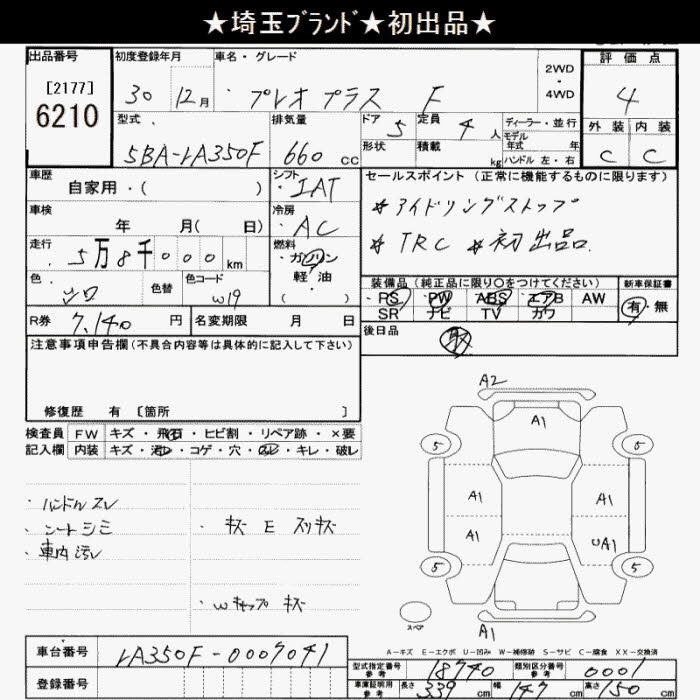 ★埼玉ﾌﾞﾗﾝﾄﾞ★初出品★
出品番号
[2177]
6210
初度登録年月
30 12月
車名・グレード
プレオ プラス F
2WD
・
4WD
評価点
4
外装 内装
C C
型式
5BA-LA350F
排気量
660 cc
ドア 5
形状
定員 4 人
積載 kg
ディーラー・並行
モデル年式 年
ハンドル 左・右
車歴
自家用・( )
シフト
IAT
車検
年 月( 日)
冷房
AC
走行
5万8千000km
燃料
ガソリン
軽・油
( )
色
シロ
色替
色コード
W19
R券 7,140 円
名変期限 月 日
セールスポイント (正常に機能するものに限ります)
＊アイドリングストップ
＊TRC ＊初出品
装備品 (純正品に限り〇をつけてください)
PS PW ABS エアB AW
SR ナビ TV カワ
新車保証書
有・無
後日品
取
注意事項申告欄(不具合内容等は具体的に記入して下さい)
修復歴 有 〔箇所 〕
検査員
記入欄
FW キズ・飛石・ヒビ割・リペア跡・×要
内装 キズ・汚レ・コゲ・穴・スレ・キレ・破レ
・ハンドルスレ
・シートシミ
・車内汚レ
・キズ E スリキズ
・Wキャップ キズ
A2
A1
5 5
A1 A1
A1 UA1
5 5
スペア
A1
A-キズ E-エクボ U-凹み W-補修跡 S-サビ C-腐食 XX-交換済
車台番号 LA350F-0007041
登録番号
型式指定番号 参考 18740
類別区分番号 参考 0001
車庫証明用 参考 長さ 339 cm 幅 147 cm 高さ 150 cm